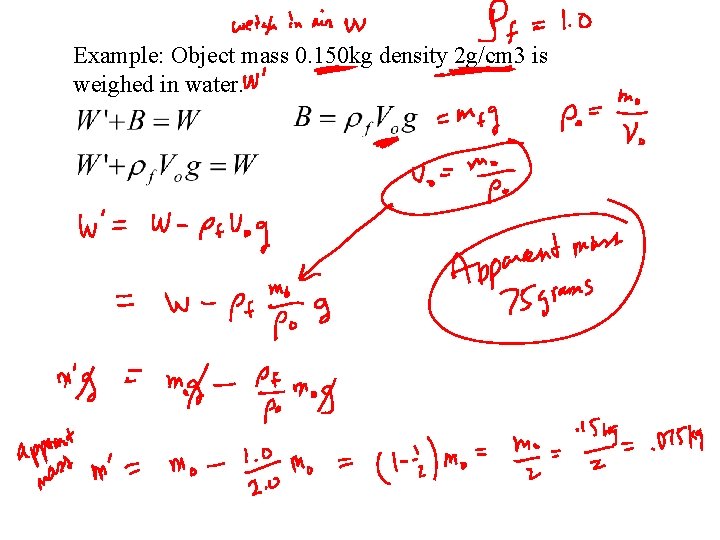 weigh in air W ρf = 1.0
Example: Object mass 0.150kg density 2 g/cm3 is
weighed in water. W'
W'+B = W B = ρ_f V_o g = m_f g ρ_o = m_o/V_o
W'+ρ_f V_o g = W V_o = m_o/ρ_o
W' = W - ρ_f V_o g
Apparent mass
75 grams
= W - ρ_f m_o/ρ_o g
m'g = m_o g - ρ_f/ρ_o m_o g
apparent
mass m' = m_o - 1.0/2.0 m_o = (1-1/2) m_o = m_o/2 = .15kg/2 = .075kg